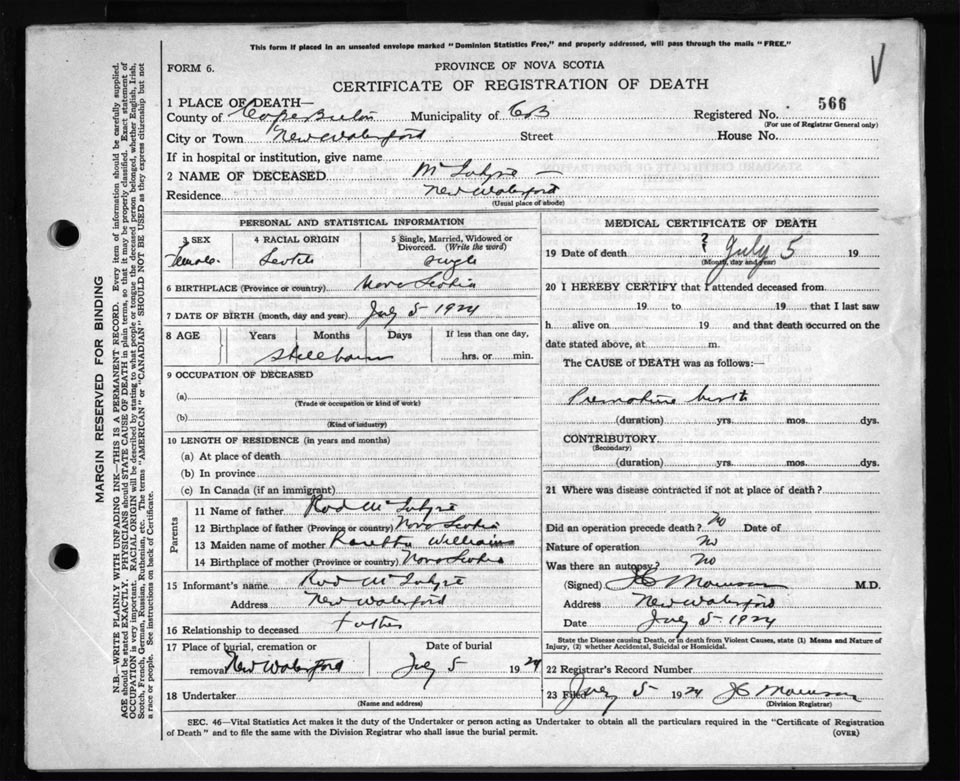 This form if placed in an unsealed envelope marked "Dominion Statistics Free," and properly addressed, will pass through the mails "FREE."
FORM 6.
PROVINCE OF NOVA SCOTIA
CERTIFICATE OF REGISTRATION OF DEATH
1 PLACE OF DEATH—
County of Cape Breton Municipality of CB Registered No. 566
(For use of Registrar General only)
City or Town New Waterford Street House No.
If in hospital or institution, give name
2 NAME OF DECEASED McIntyre —
Residence New Waterford
(Usual place of abode)
PERSONAL AND STATISTICAL INFORMATION
3 SEX 4 RACIAL ORIGIN 5 Single, Married, Widowed or Divorced. (Write the word)
Female Scotch single
6 BIRTHPLACE (Province or country) Nova Scotia
7 DATE OF BIRTH (month, day and year) July 5 1924
8 AGE Years Months Days If less than one day,
Stillborn hrs. or min.
9 OCCUPATION OF DECEASED
(a)
(Trade or occupation or kind of work)
(b)
(Kind of industry)
10 LENGTH OF RESIDENCE (in years and months)
(a) At place of death
(b) In province
(c) In Canada (if an immigrant)
Parents
11 Name of father Rod McIntyre
12 Birthplace of father (Province or country) Nova Scotia
13 Maiden name of mother Williams
14 Birthplace of mother (Province or country) Nova Scotia
15 Informant's name Rod McIntyre
Address New Waterford
16 Relationship to deceased Father
17 Place of burial, cremation or Date of burial
removal New Waterford July 5 1924
18 Undertaker
(Name and address)
MEDICAL CERTIFICATE OF DEATH
19 Date of death ? July 5 19
(Month, day and year)
20 I HEREBY CERTIFY that I attended deceased from
19 to 19 that I last saw
h alive on 19 and that death occurred on the
date stated above, at m.
The CAUSE of DEATH was as follows:—
Premature birth
(duration) yrs. mos. dys.
CONTRIBUTORY
(Secondary)
(duration) yrs. mos. dys.
21 Where was disease contracted if not at place of death?
Did an operation precede death? No Date of
Nature of operation No
Was there an autopsy? No
(Signed) M.D.
Address New Waterford
Date July 5 - 1924
State the Disease causing Death, or in death from Violent Causes, state (1) Means and Nature of
Injury, (2) whether Accidental, Suicidal or Homicidal.
22 Registrar's Record Number
23 Filed July 5 1924
(Division Registrar)
SEC. 46—Vital Statistics Act makes it the duty of the Undertaker or person acting as Undertaker to obtain all the particulars required in the "Certificate of Registration
of Death" and to file the same with the Division Registrar who shall issue the burial permit. (OVER)
MARGIN RESERVED FOR BINDING
N.B.—WRITE PLAINLY WITH UNFADING INK—THIS IS A PERMANENT RECORD. Every item of information should be carefully supplied.
AGE should be stated EXACTLY. PHYSICIANS should STATE CAUSE OF DEATH in plain terms, so that it may be properly classified. Exact statement of
OCCUPATION is very important. RACIAL ORIGIN will be described by stating to what people or tongue the deceased person belonged, whether English, Irish,
Scotch, French, German, Russian, Ruthenian, etc. The terms "AMERICAN" or "CANADIAN" SHOULD NOT BE USED as they express citizenship but not
a race or people. See instructions on back of Certificate.